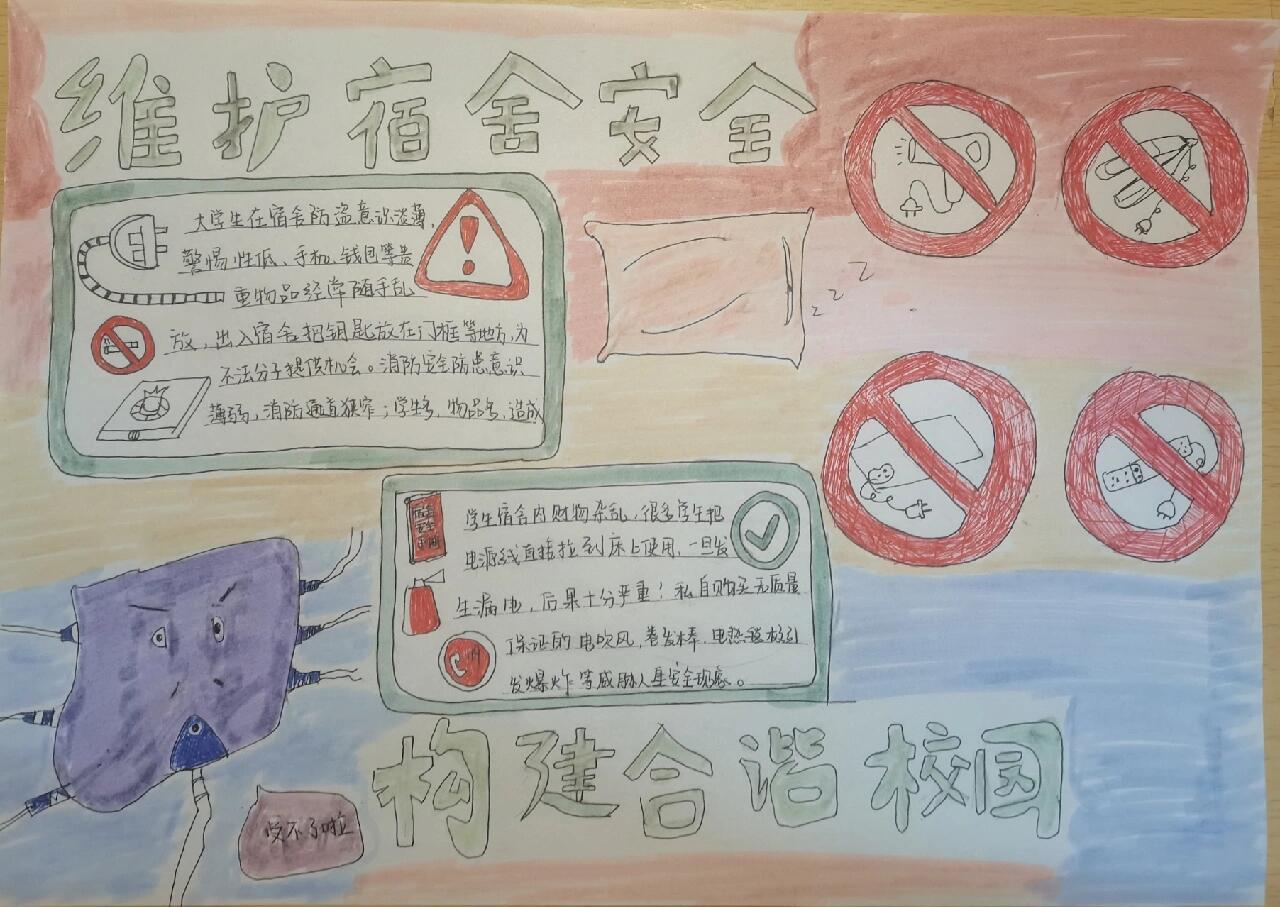 维护宿舍安全
大学生在宿舍防盗意识淡薄,
警惕性低、手机、钱包等贵
重物品经常随手乱
放,出入宿舍把钥匙放在门框等地方,为
不法分子提供机会。消防安全防患意识
薄弱,消防通道狭窄;学生多,物品多,造成
z z z
学生宿舍内财物杂乱,很多学生把
电源线直接拉到床上使用,一旦发
生漏电,后果十分严重!私自购买无质量
保证的电吹风,卷发棒,电热毯
发爆炸等威胁人垦安全现象。
受不了啦
构建合谐校园